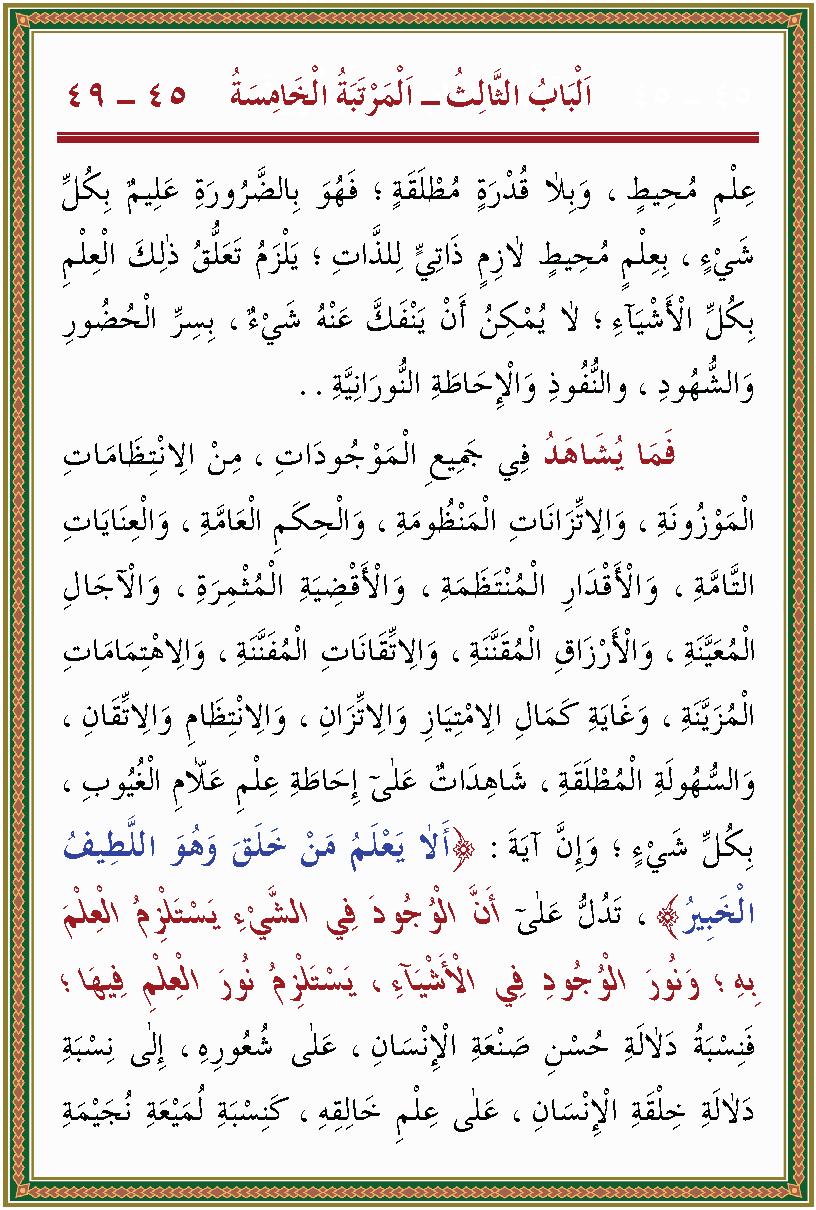 اَلْبَابُ الثَّالِثُ ــ اَلْمَرْتَبَةُ الْخَامِسَةُ ٤٥ – ٤٩
عِلْمٍ مُحِيطٍ ، وَبِلاٰ قُدْرَةٍ مُطْلَقَةٍ ؛ فَهُوَ بِالضَّرُورَةِ عَلِيمٌ بِكُلِّ
شَيْءٍ ، بِعِلْمٍ مُحِيطٍ لاٰزِمٍ ذَاتِيٍّ لِلذَّاتِ ؛ يَلْزَمُ تَعَلُّقُ ذٰلِكَ الْعِلْمِ
بِكُلِّ الْأَشْيَآءِ ؛ لاٰ يُمْكِنُ أَنْ يَنْفَكَّ عَنْهُ شَيْءٌ ، بِسِرِّ الْحُضُورِ
وَالشُّهُودِ ، والنُّفُوذِ وَالْإِحَاطَةِ النُّورَانِيَّةِ . .
فَمَا يُشَاهَدُ فِي جَمِيعِ الْمَوْجُودَاتِ ، مِنْ الاِنْتِظَامَاتِ
الْمَوْزُونَةِ ، وَالاِتِّزَانَاتِ الْمَنْظُومَةِ ، وَالْحِكَمِ الْعَامَّةِ ، وَالْعِنَايَاتِ
التَّامَّةِ ، وَالْأَقْدَارِ الْمُنْتَظَمَةِ ، وَالْأَقْضِيَةِ الْمُثْمِرَةِ ، وَالْآجَالِ
الْمُعَيَّنَةِ ، وَالْأَرْزَاقِ الْمُقَنَّنَةِ ، وَالاِتِّقَانَاتِ الْمُفَنَّنَةِ ، وَالاِهْتِمَامَاتِ
الْمُزَيَّنَةِ ، وَغَايَةِ كَمَالِ الاِمْتِيَازِ وَالاِتِّزَانِ ، وَالاِنْتِظَامِ وَالاِتِّقَانِ ،
وَالسُّهُولَةِ الْمُطْلَقَةِ ، شَاهِدَاتٌ عَلٰٓى إِحَاطَةِ عِلْمِ عَلاّٰمِ الْغُيُوبِ ،
بِكُلِّ شَيْءٍ ؛ وَإِنَّ آيَةَ : ﴿أَلاٰ يَعْلَمُ مَنْ خَلَقَ وَهُوَ اللَّطِيفُ
الْخَبِيرُ﴾ ، تَدُلُّ عَلٰٓى أَنَّ الْوُجُودَ فِي الشَّيْءِ يَسْتَلْزِمُ الْعِلْمَ
بِهِ ؛ وَنُورَ الْوُجُودِ فِي الْأَشْيَآءِ ، يَسْتَلْزِمُ نُورَ الْعِلْمِ فِيهَا ؛
فَنِسْبَةُ دَلاٰلَةِ حُسْنِ صَنْعَةِ الْإِنْسَانِ ، عَلٰى شُعُورِهِ ، إِلٰى نِسْبَةِ
دَلاٰلَةِ خِلْقَةِ الْإِنْسَانِ ، عَلٰى عِلْمِ خَالِقِهِ ، كَنِسْبَةِ لُمَيْعَةِ نُجَيْمَةِ